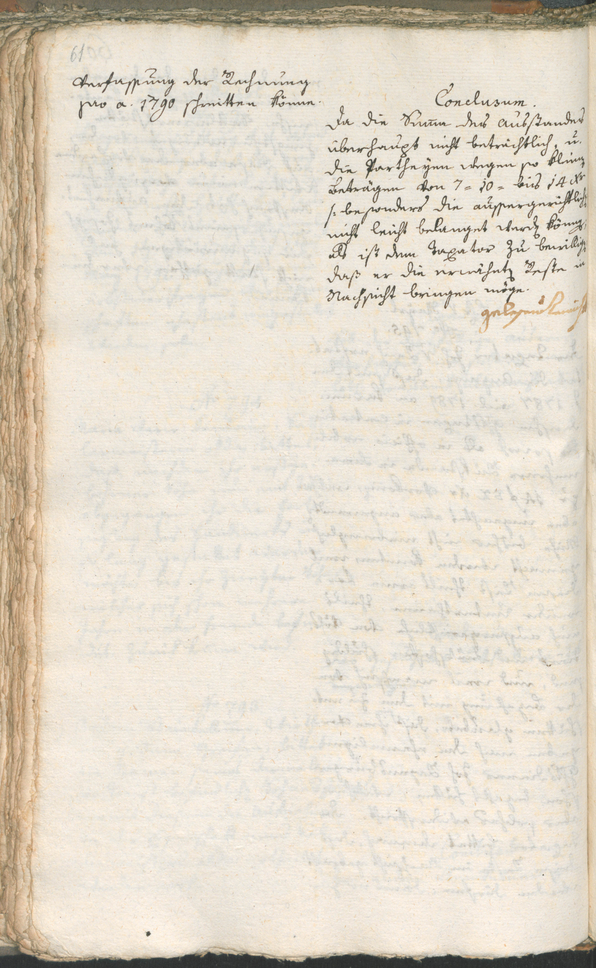 6100
Verfassung der Rechnung
pro a. 1790 schnitten könne.
Conclusum.
Da die Summa des Ausstandes
überhaupt nicht beträchtlich, u.
die Partheyen wegen so kleine
Beträgen von 7 = 10 = bis 14 Xr
/: besonders die aussergerichtliche
nicht leicht belanget werden könne,
als ist dem Taxator zu bewillige
daß er die erwähnte Reste in
Nachsicht bringen möge.